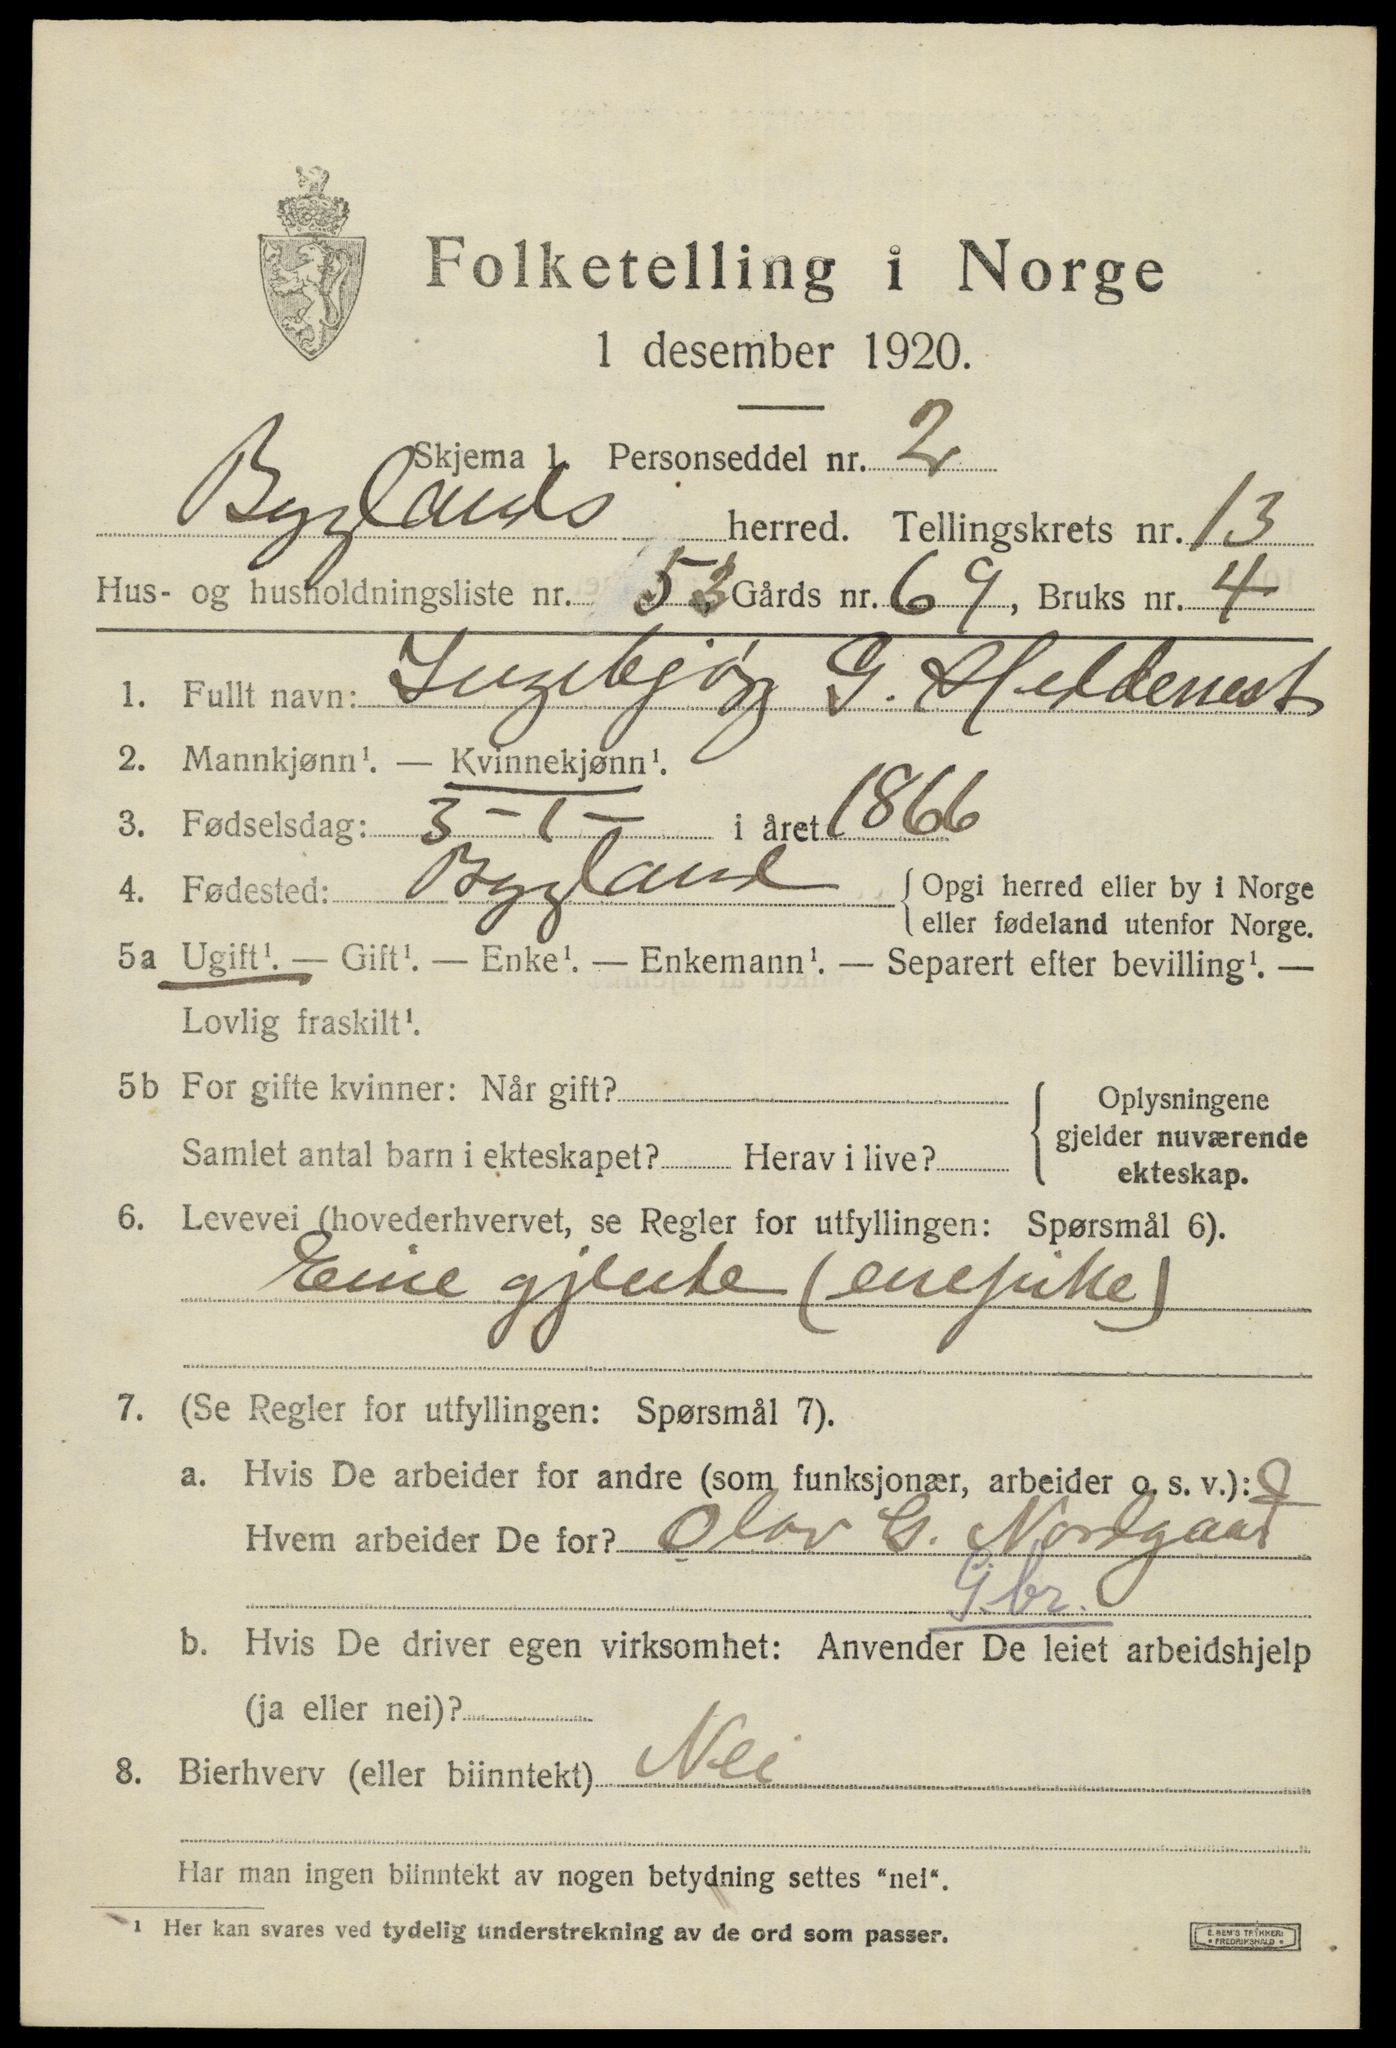 Folketelling i Norge
1 desember 1920.
Skjema 1. Personseddel nr. 2
Byglands herred. Tellingskrets nr. 13
Hus- og husholdningsliste nr. 53 Gårds nr. 69, Bruks nr. 4
1. Fullt navn: Ingebjørg G. Heddenest
2. Mannkjønn¹. — Kvinnekjønn¹.
3. Fødselsdag: 3 - 1 - i året 1866
4. Fødested: Bygland {Opgi herred eller by i Norge
eller fødeland utenfor Norge.
5a Ugift¹. — Gift¹. — Enke¹. — Enkemann¹. — Separert efter bevilling¹. —
Lovlig fraskilt¹.
5b For gifte kvinner: Når gift?
Samlet antal barn i ekteskapet? Herav i live?
Oplysningene
gjelder nuværende
ekteskap.
6. Levevei (hovederhvervet, se Regler for utfyllingen: Spørsmål 6).
Eine gjente (enepike)
7. (Se Regler for utfyllingen: Spørsmål 7).
a. Hvis De arbeider for andre (som funksjonær, arbeider o. s. v.):
Hvem arbeider De for? Olav G. Nordgaard
G.br.
b. Hvis De driver egen virksomhet: Anvender De leiet arbeidshjelp
(ja eller nei)?
8. Bierhverv (eller biinntekt) Nei
Har man ingen biinntekt av nogen betydning settes "nei".
¹ Her kan svares ved tydelig understrekning av de ord som passer.
E. SEM'S TRYKKERI
FREDRIKSHALD